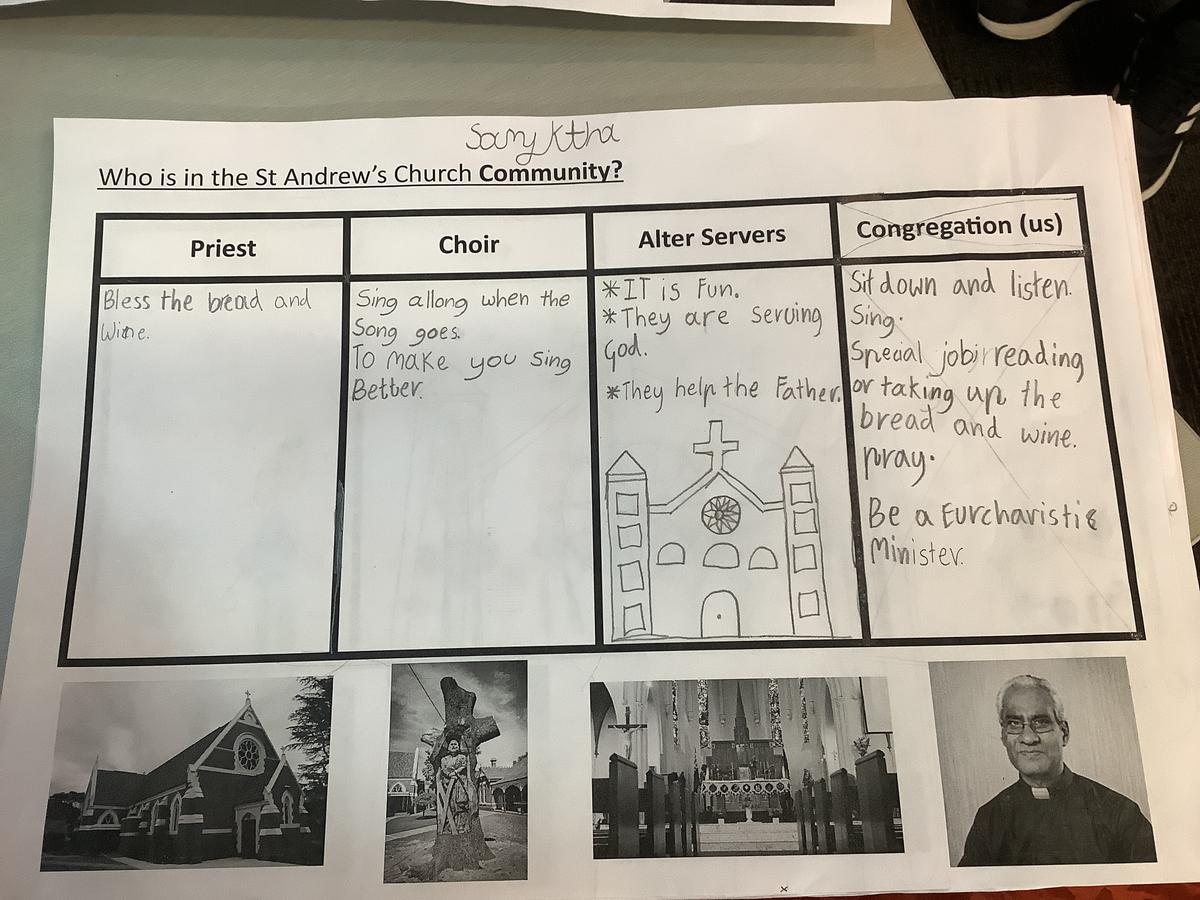 Samyktha
Who is in the St Andrew's Church Community?
Priest
Bless the bread and
Wine.
Choir
Sing allong when the
Song goes.
To make you sing
Better.
Alter Servers
*IT is Fun.
*They are serving
God.
*They help the Father.
Congregation (us)
Sit down and listen.
Sing.
Special job: reading
or taking up the
bread and wine.
pray.
Be a Eurcharistic
Minister.